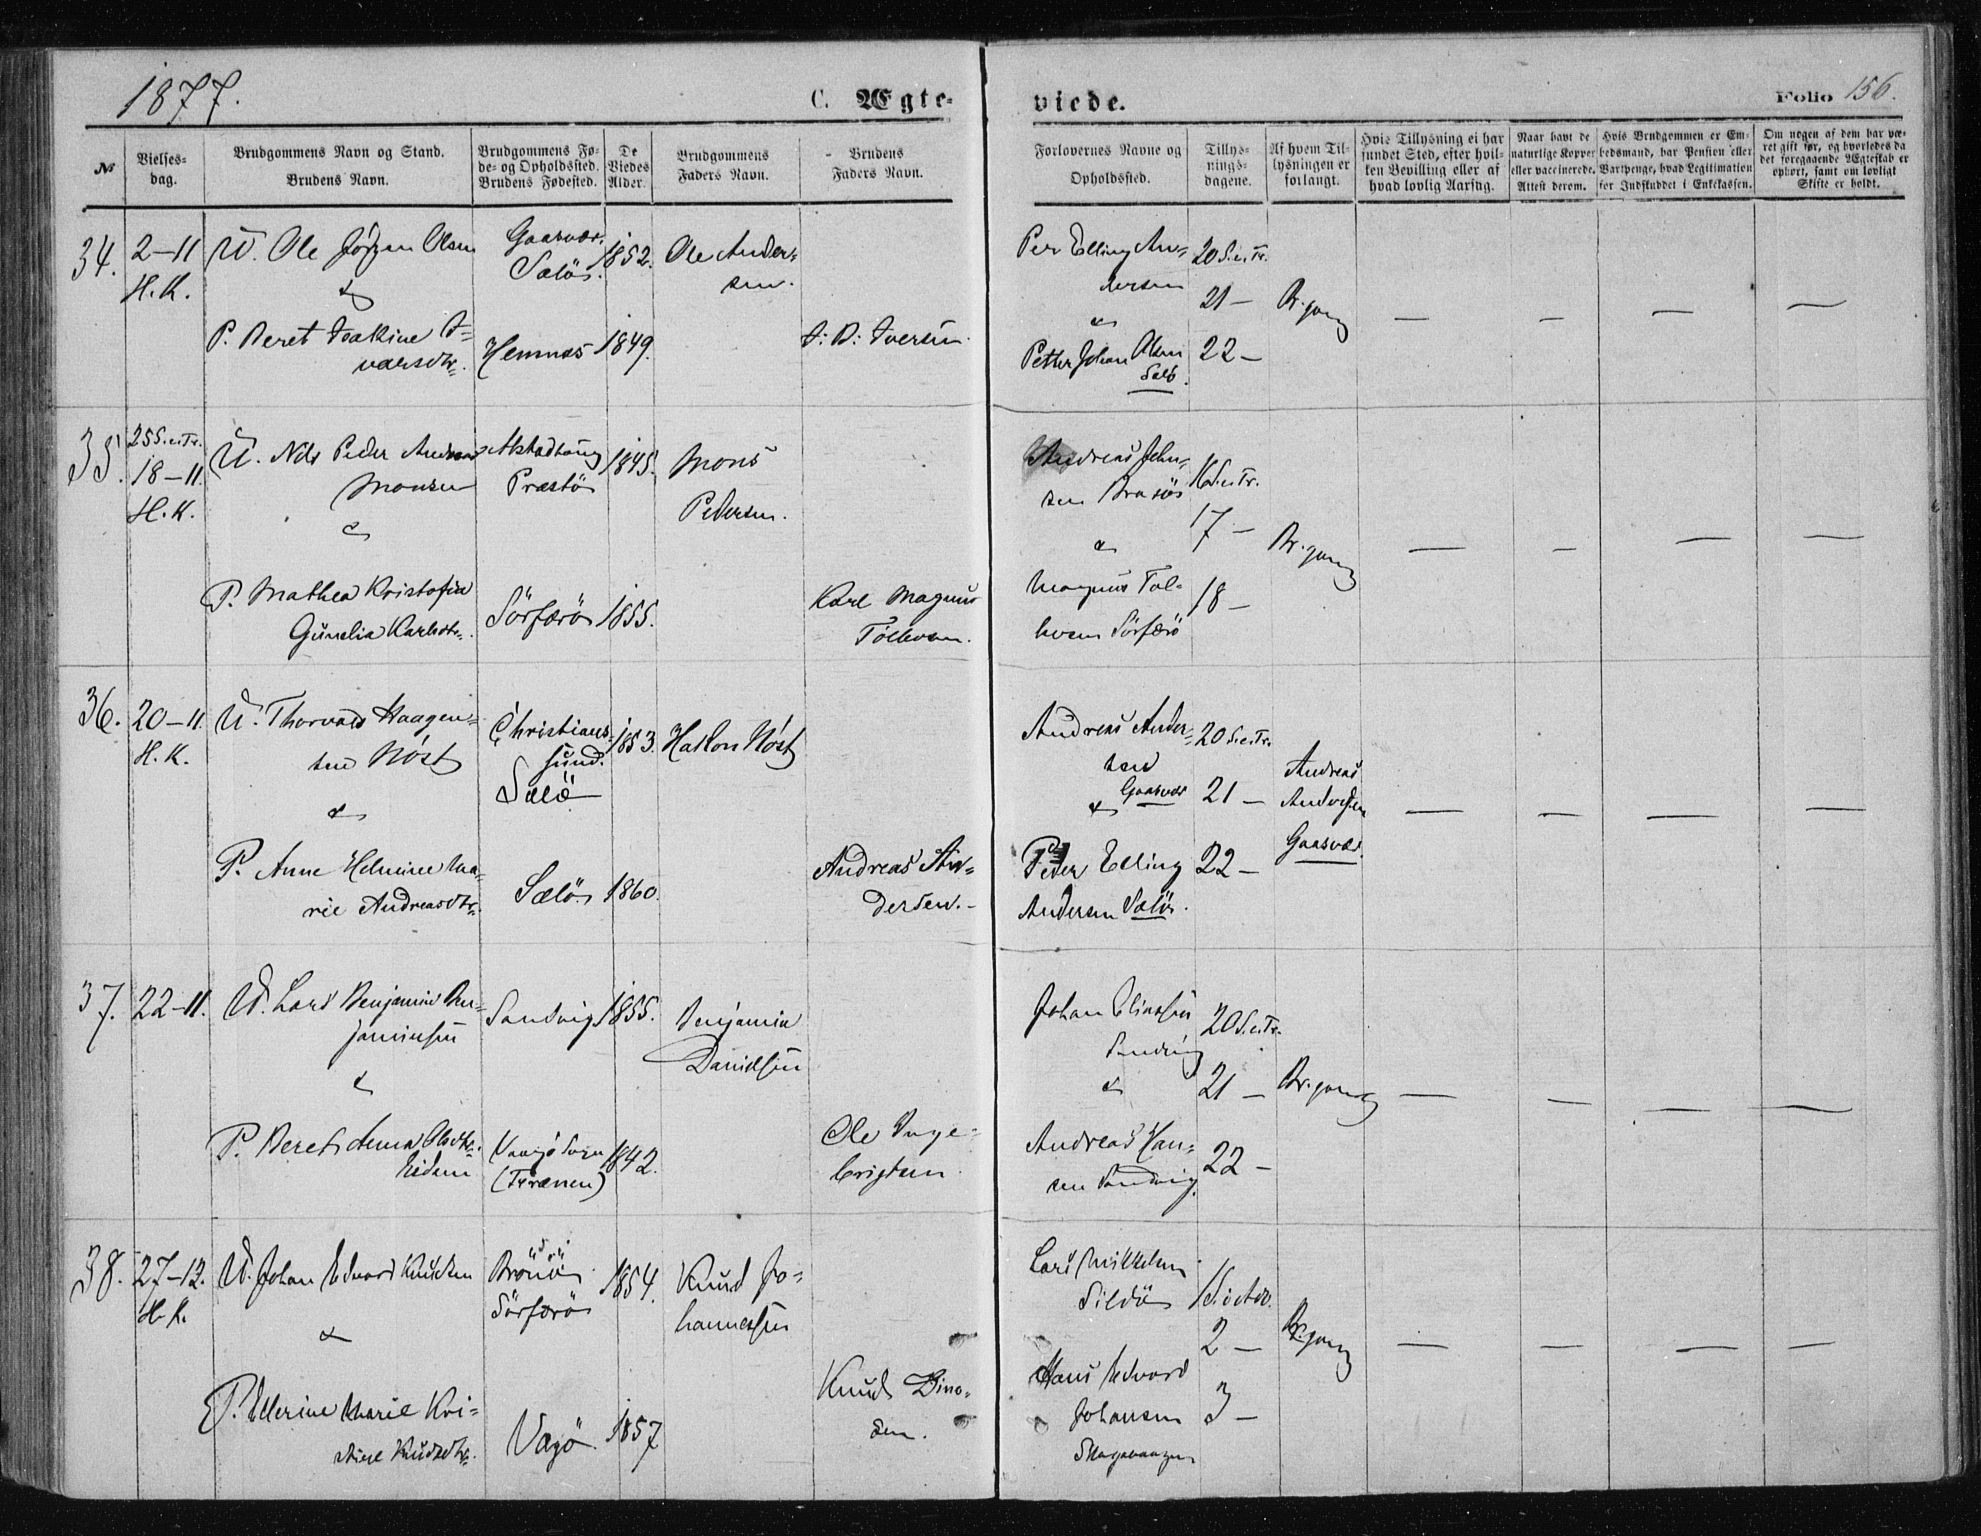 1877.
C. Ægte-
viede.
Folio 156.
№
Vielses-
dag.
Brudgommens Navn og Stand.
Brudens Navn.
Brudgommens Fø-
de- og Opholdssted.
Brudens Fødested.
De
Viedes
Alder.
Brudgommens
Faders Navn.
Brudens
Faders Navn.
Forlovernes Navne og
Opholdssted.
Tillys-
nings-
dagene.
Af hvem Til-
lysningen er
forlangt.
Hvis Tillysning ei har
fundet Sted, efter hvil-
ken Bevilling eller af
hvad lovlig Aarsag.
Naar havt de
naturlige Kopper
eller vaccinerede.
Attest derom.
Hvis Brudgommen er Em-
bedsmand, har Pension eller
Vartpenge, hvad Legitimation
for Indskuddet i Enkekassen.
Om nogen af dem har væ-
ret gift før, og hvorledes da
det foregaaende Ægteskab er
ophørt, samt om lovligt
Skifte er holdt.
34.
2-11
H.K.
U. Ole Jørgen Olsen
&
P. Beret Isakine I=
varsdtr.
Gaasvær.
Sælö.
Hemnæs
1852.
1849.
Ole Ander-
sen.
I. D. Iversen.
Per Elling An=
dersen
&
Petter Johan Olsen
Sælö.
20 S.e.Tr.
21 —
22 —
Br.gom
35.
25 S.e.Tr.
18-11.
H.K.
U. Nils Peder Andreas
Monsen
&
P. Mathea Kristofia
Gunelia Karlsdtr.
Alstadhoug
Præstö
Sörfærö
1845.
1855.
Mons
Pedersen.
Karl Magnus
Tollevsen.
Andreas John-
sen Brasös
&
Magnus Tol-
levsen Sörfærö
16 S.e.Tr.
17 —
18 —
Br.gom
36.
20-11
H.K.
U. Thorvald Haagen=
sen Nöst
&
P. Anne Helmine Ma-
rie Andreasdtr.
Christians-
sund.
Sælö
Sælö.
1853.
1860.
Hakon Nöst
Andreas An-
dersen.-
Andreas Ander-
sen
Gaasvær
&
Peder Elling
Andersen Sælö.
20 S.e.Tr.
21 —
22 —
Andreas
Andersen
Gaasvær.
37.
22-11.
U. Lars Benjamin Ben-
jaminsen
&
P. Beret Anna Olsdtr.
Sandvig
Vaagö Sogn
(Trænen)
1855.
1842.
Benjamin
Danielsen
Ole Inge-
brigtsen
Johan Eliassen
Sandvig
&
Andreas Han-
sen Sandvig.
20 S.e.Tr.
21 —
22 —
Br.gom
38.
27-12.
H.K.
U. Johan Edvard Knudsen
&
P. Ellerine Marie Kri-
stine Knudsdtr.
Brönö
Sörfærö
Vægö.
1854.
1857
Knud Jo-
hannessen
Knud Dino-
sen.
Lars Mikkelsen
Sildö
Hans Edvard
Johansen
1 S. i Adv.
2 —
3 —
Br.gom